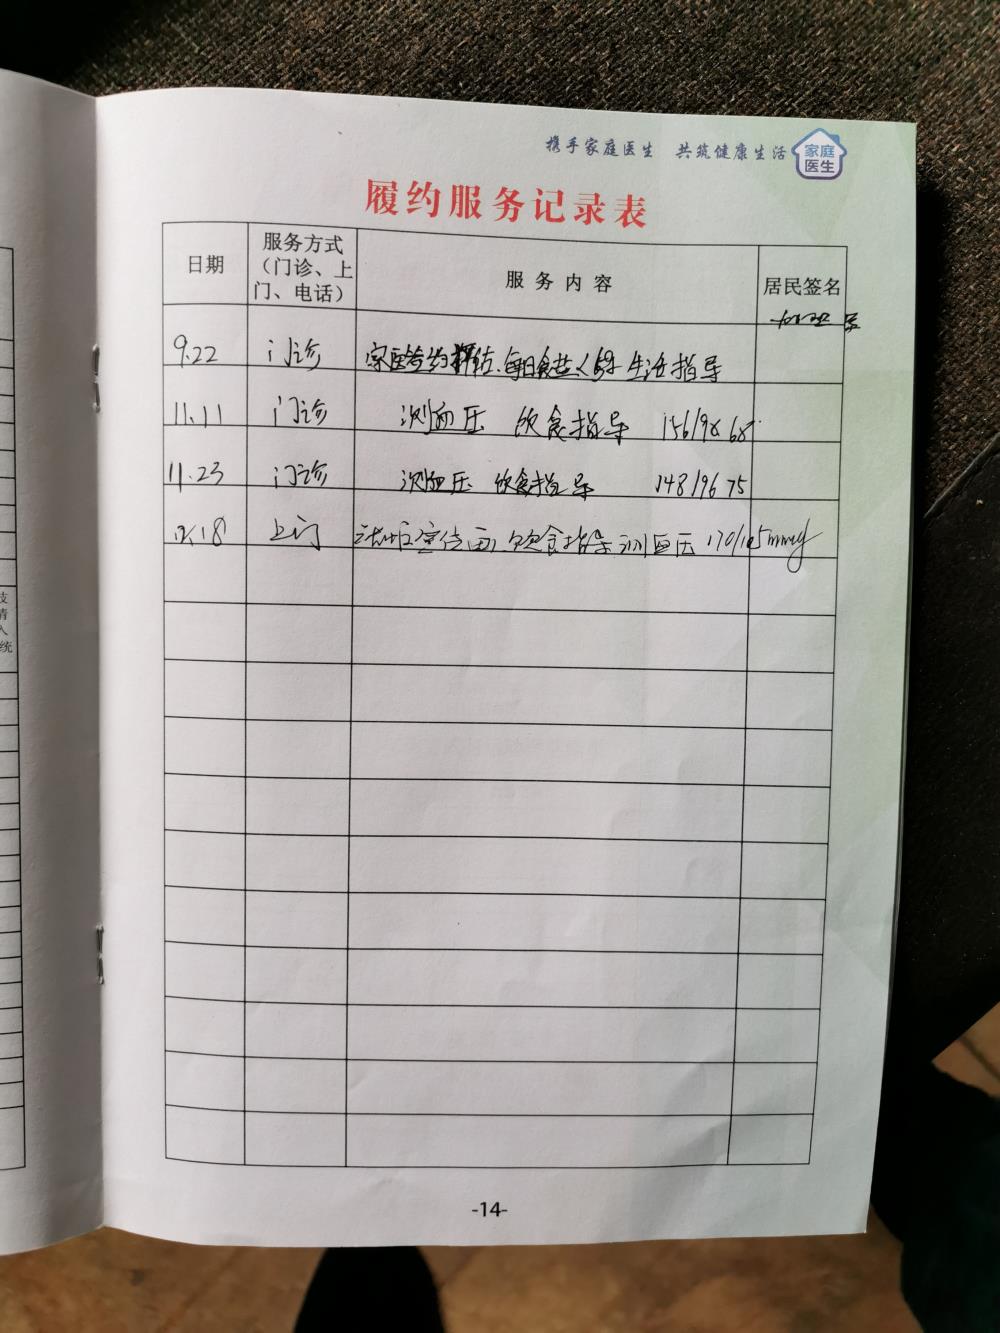 携手家庭医生 共筑健康生活
家庭
医生
履约服务记录表
日期
服务方式
（门诊、上
门、电话）
服务内容
居民签名
9.22 门诊 生活指导
11.11 门诊 测血压 饮食指导 156/98 68
11.23 门诊 测血压 饮食指导 148/96 75
12.18 上门 饮食指导 测血压 170/105mmHg
技
情
人
统
-14-